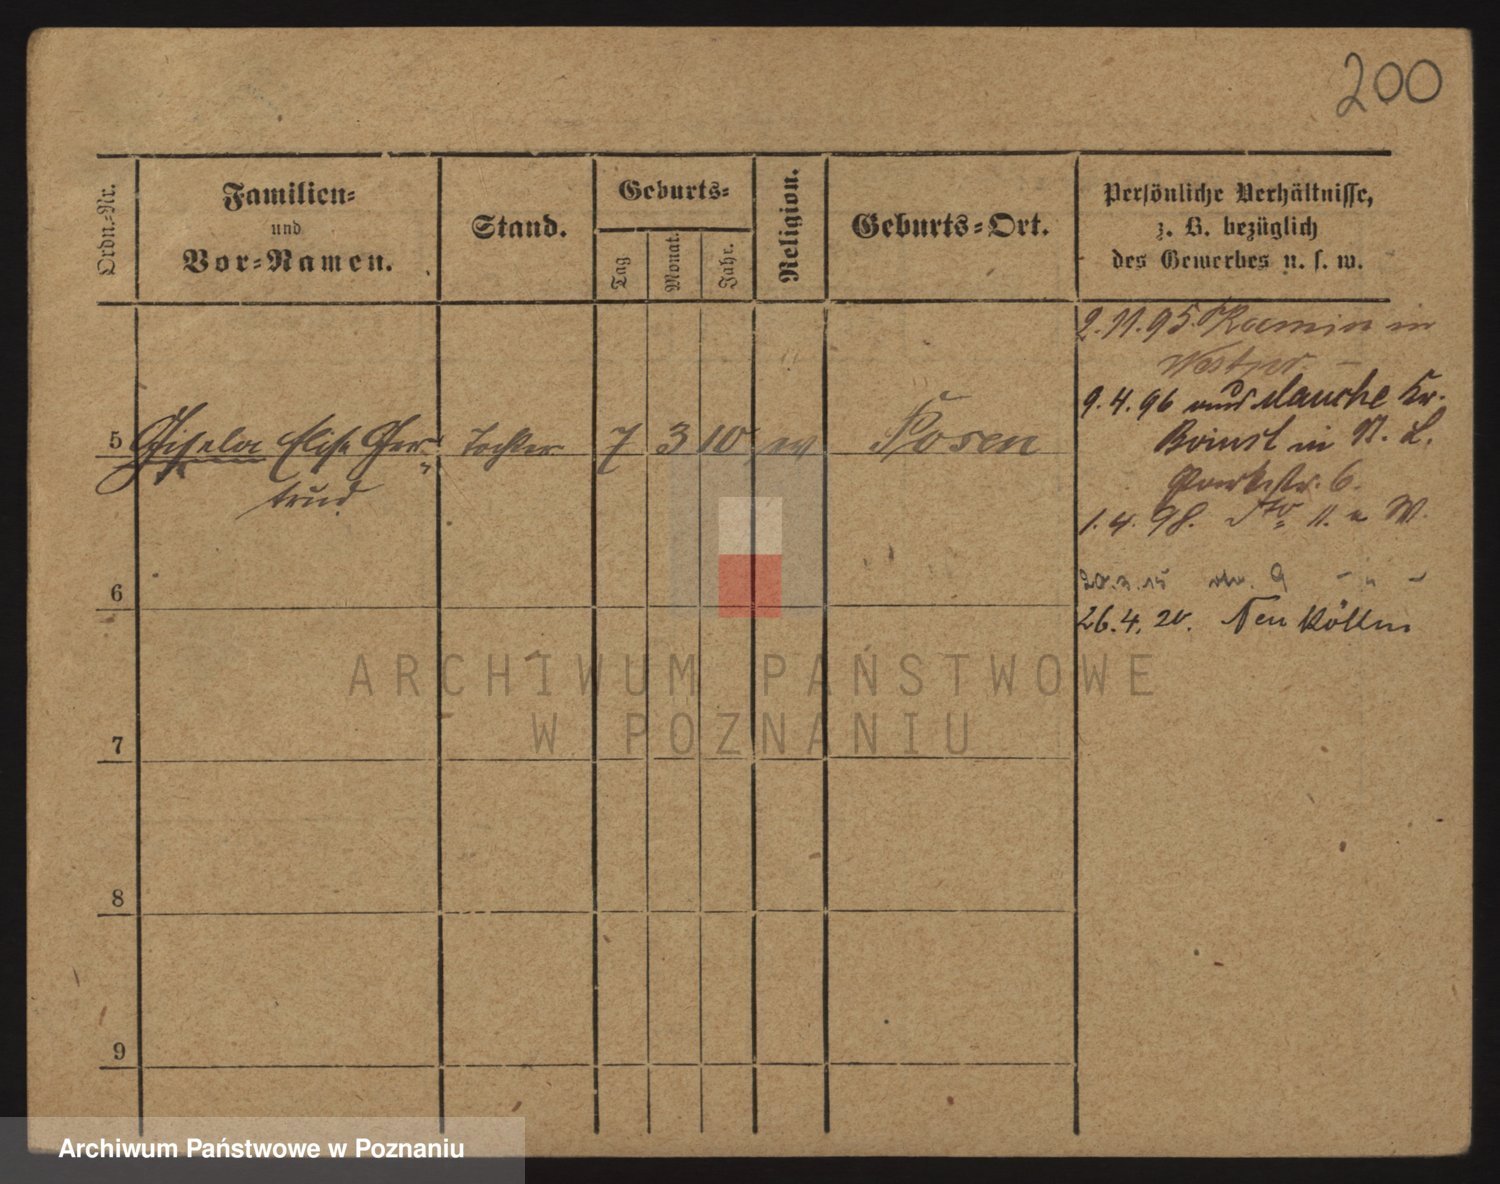 200
Ordn.-Nr.
Familien-
und
Vor-Namen.
Stand.
Geburts-
Tag
Monat.
Jahr.
Religion.
Geburts-Ort.
Persönliche Verhältnisse,
z. B. bezüglich
des Gewerbes u. s. w.
2.11.95. Kamin in
Westpr.
9.4.96 Kr.
in N. L.
5 Gisela Elise Ger- Tochter 7 3 10 ev Posen
trud
Parkstr. 6.
1.4.98.
6
26.4.20. Neu Kölln
ARCHIWUM PAŃSTWOWE
W POZNANIU
7
8
9
Archiwum Państwowe w Poznaniu